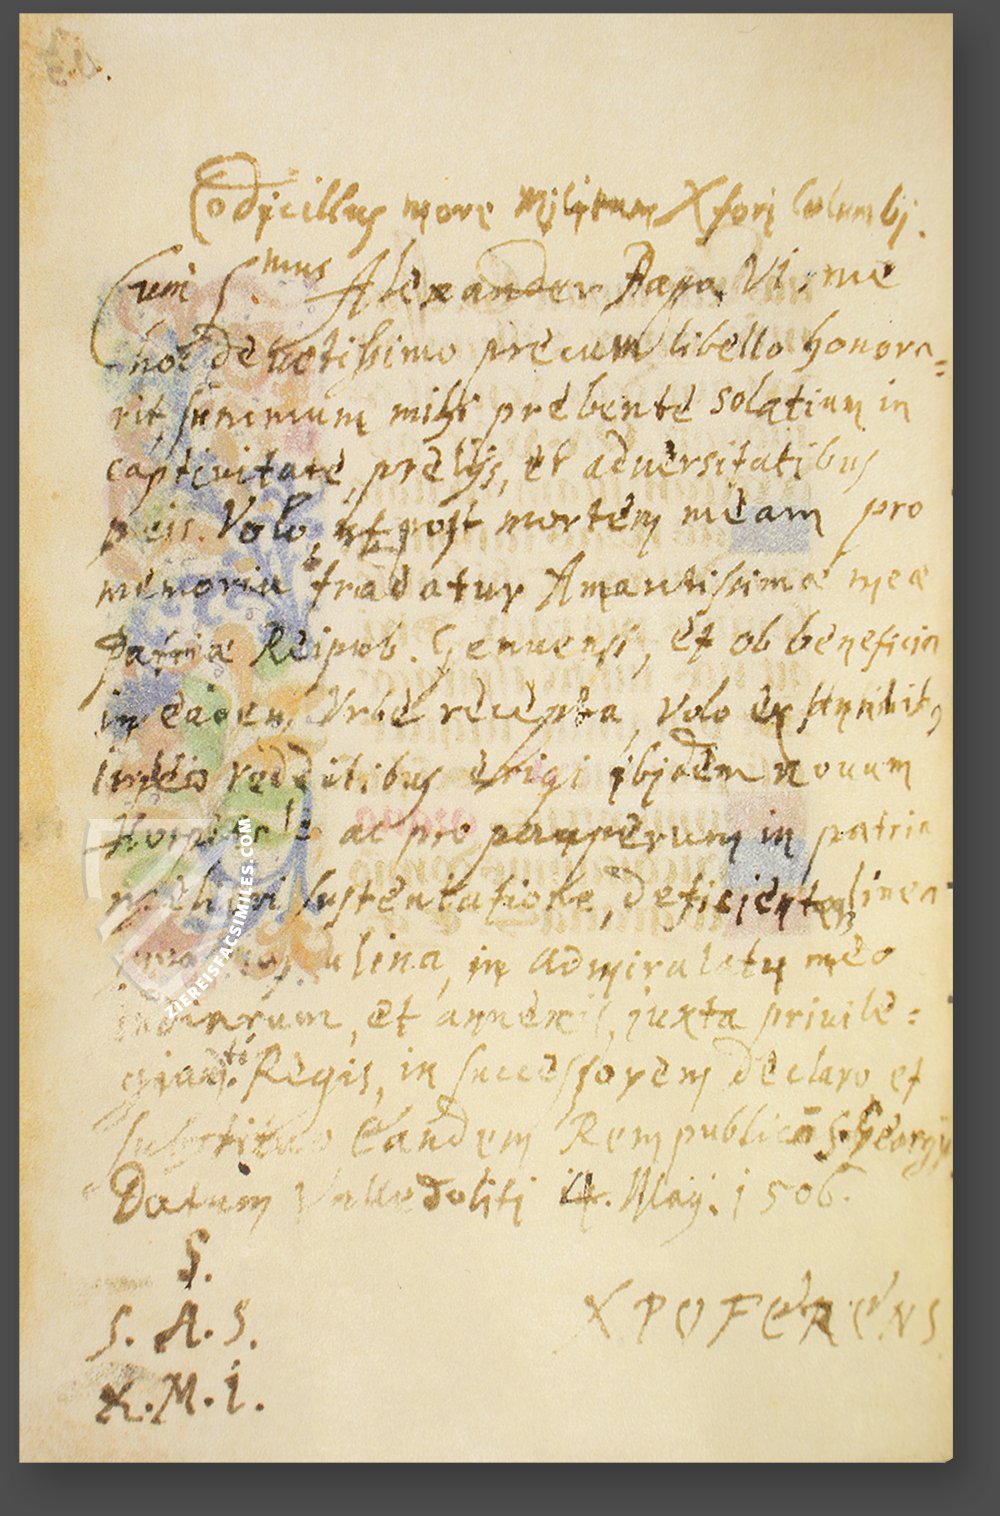 Codicillus more Militum Xfori Columbj.
Cum S.mus Alexander Papa VI. me
hoc devotissimo precum libello honora=
rit, summum mihi prebente solatium in
captivitate, prelijs, et adversitatibus
meis. Volo, ut post mortem meam pro
memoria tradatur Amantissimæ meæ
Patriæ Reipub. Genuensi, et ob beneficia
in eadem Urbe recepta, volo ex
redditibus erigi ibjdem novum
ac pro pauperum in patria
sustentatione, deficiente linea
mea, in Admiralatu meo
Indiarum, et annexis, juxta privile=
Regis, in successorem declaro et
substituo Eandem Rempublicā S. Georgij
Datum Valledoliti 4. Maij. 1506.
S.
S. A. S.
X. M. I.
XPOFERENS
ZIEREISFACSIMILES.COM